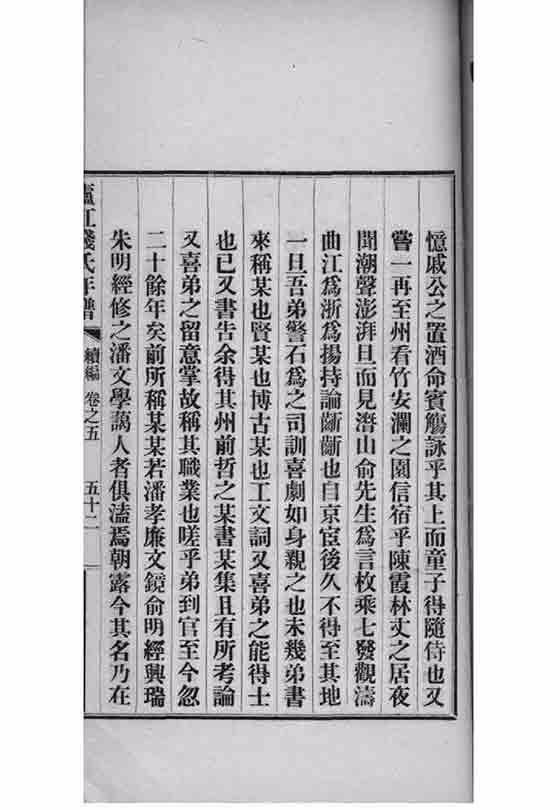 憶戚公之置酒命賓觴詠乎其上而童子得隨侍也又
嘗一再至州看竹安瀾之園信宿乎陳霞林丈之居夜
聞潮聲澎湃旦而見潛山俞先生爲言枚乘七發觀濤
曲江爲浙爲揚持論齗齗也自京宦後久不得至其地
一旦吾弟警石爲之司訓喜劇如身親之也未幾弟書
來稱某也賢某也博古某也工文詞又喜弟之能得士
也已又書告余得其州前哲之某書某集且有所考論
又喜弟之留意掌故稱其職業也嗟乎弟到官至今忽
二十餘年矣前所稱某某若潘孝廉文鏡俞明經興瑞
朱明經修之潘文學藹人者俱溘焉朝露今其名乃在
廬江錢氏年譜 續編 卷之五 五十二